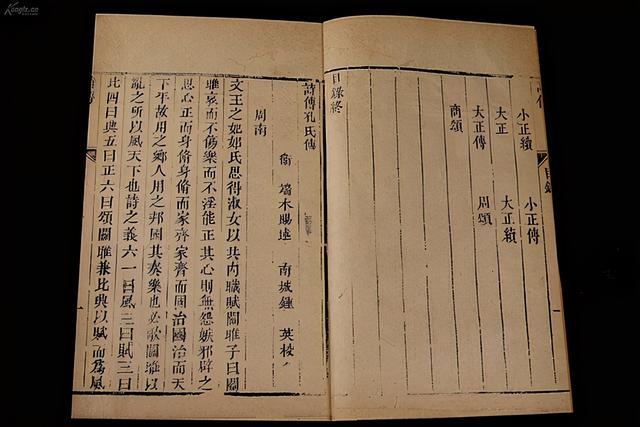 Kongfz.cn
目錄
一
小正續 小正傳
大正 大正續
大正傳 周頌
商頌
目錄終
詩傳孔氏傳
衛 端木賜述 南城鍾 英校
周南
文王之妃姒氏思得淑女以共內職賦關雎子曰關
雎哀而不傷樂而不淫能正其心則無怨嫉邪辟之
思心正而身脩身脩而家齊家齊而國治國治而天
下平故用之鄉人用之邦國其奏樂也必歌關雎以
亂之所以風天下也詩之義六一曰風二曰賦三曰
比四曰興五曰正六曰頌關雎兼比興以賦而爲風
一